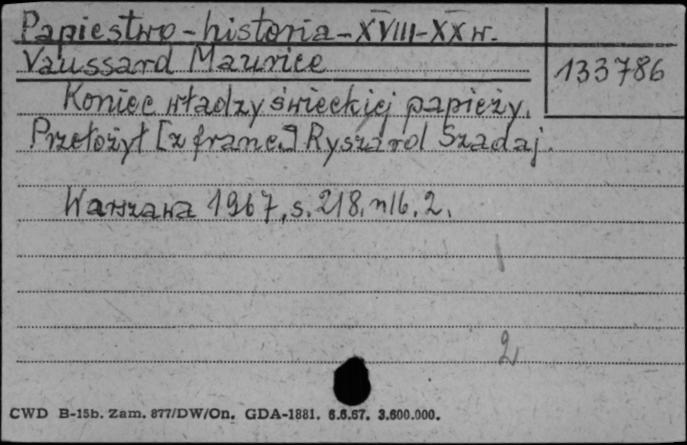 Papiestwo - historia - XVIII-XX w.
Vaussard Maurice
133786
Koniec władzy świeckiej papieży.
Przełożył [z franc.] Ryszard Szadaj.
Warszawa 1967, s. 218, nlb. 2.
2
CWD B-15b. Zam. 877/DW/On. GDA-1881. 6.6.67. 3.600.000.